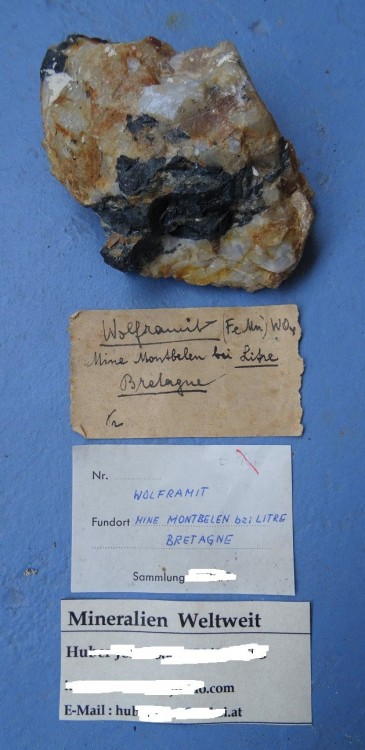 Wolframit (Fe Mn) WO4
Mine Montbelen bei Litre
Bretagne
Nr.
WOLFRAMIT
Fundort MINE MONTBELEN bei LITRE
BRETAGNE
Sammlung
Mineralien Weltweit
.com
E-Mail : hub .at